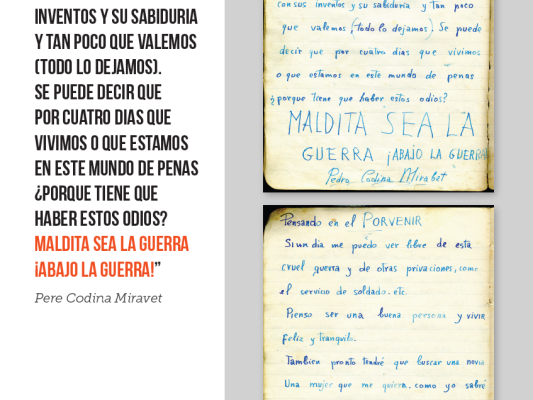 INVENTOS Y SU SABIDURIA
Y TAN POCO QUE VALEMOS
(TODO LO DEJAMOS).
SE PUEDE DECIR QUE
POR CUATRO DIAS QUE
VIVIMOS O QUE ESTAMOS
EN ESTE MUNDO DE PENAS
¿PORQUE TIENE QUE
HABER ESTOS ODIOS?
MALDITA SEA LA GUERRA
¡ABAJO LA GUERRA!”
Pere Codina Miravet
con sus inventos y su sabiduria y tan poco
que valemos (todo lo dejamos). Se puede
decir que por cuatro dias que vivimos
o que estamos en este mundo de penas
¿porque tiene que haber estos odios?
MALDITA SEA LA
GUERRA ¡ABAJO LA GUERRA!
Pedro Codina Mirabet
Pensando en el PORVENIR
Si un dia me puedo ver libre de esta
cruel guerra y de otras privaciones, como
el servicio de soldado. etc.
Pienso ser una buena persona y vivir
Feliz y tranquilo.
Tambien pronto tendré que buscar una novia
Una mujer que me quiera. como yo sabré